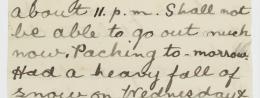 about 11. p.m. Shall not
be able to go out much
now. Packing to-morrow.
Had a heavy fall of
snow on Wednesday &